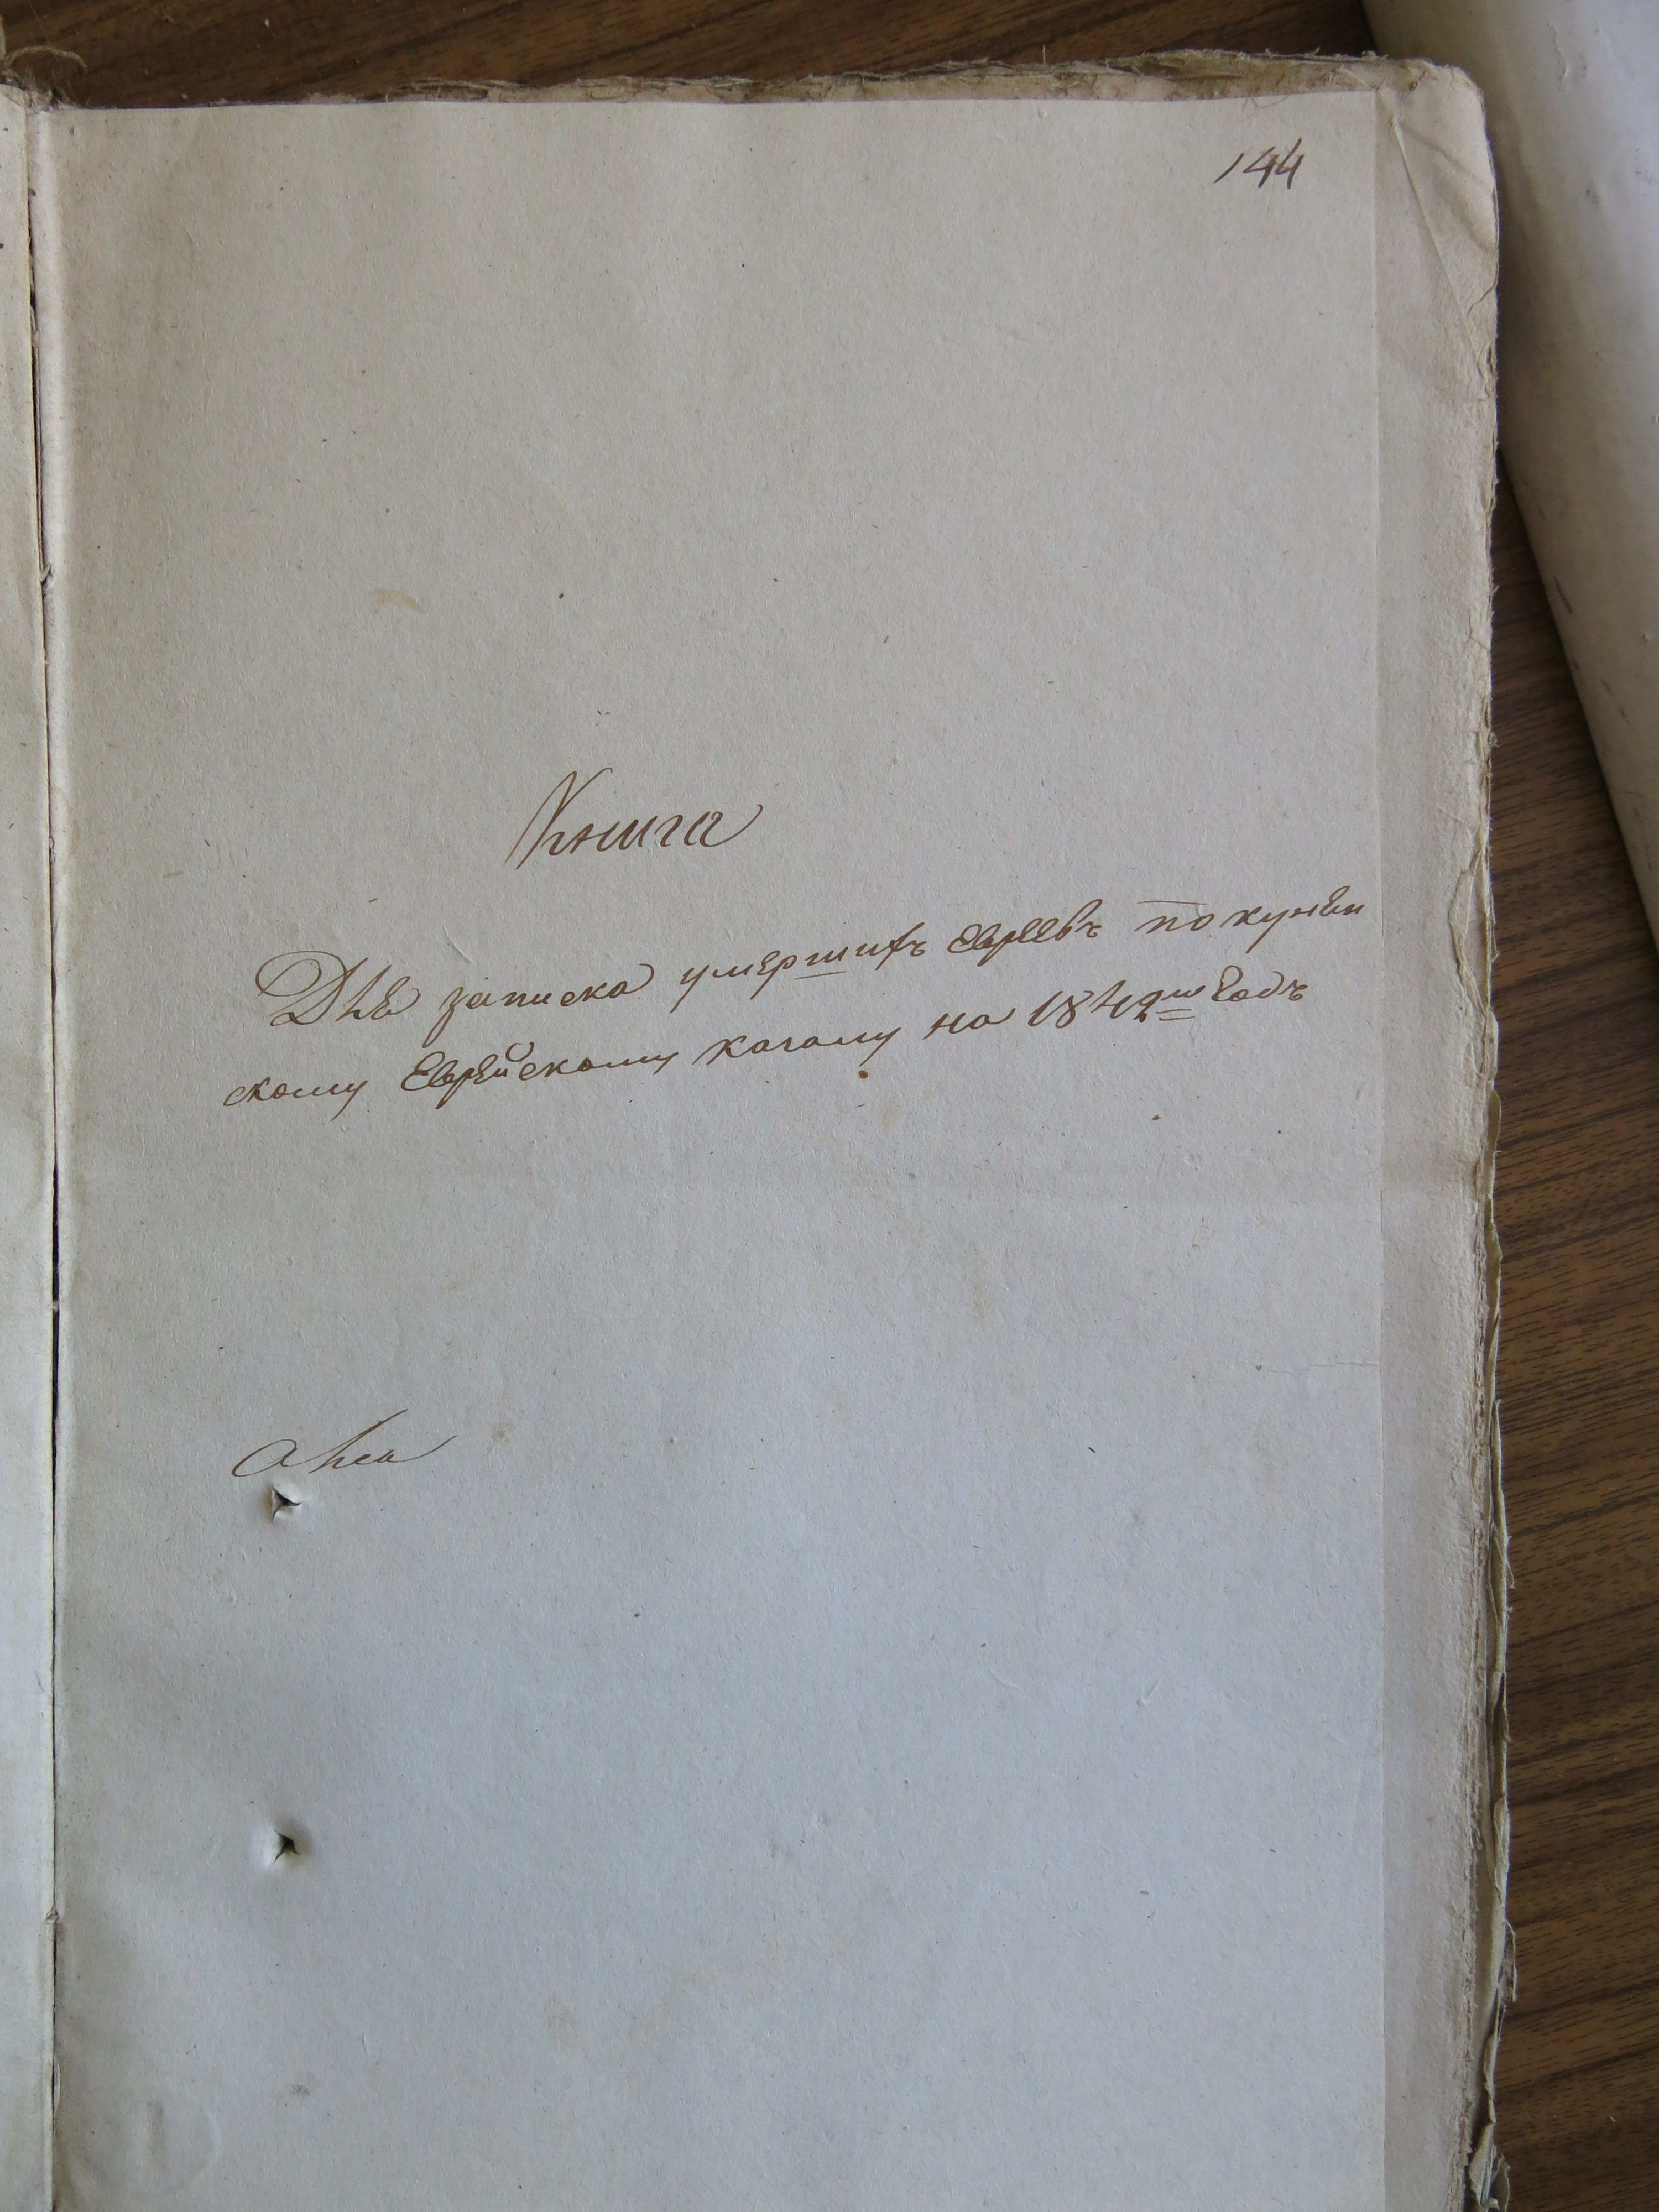 144
Книга
Для записка умершихъ Евреевъ по кунѣв
скому Еврейскому кагалу на 1842й Годъ